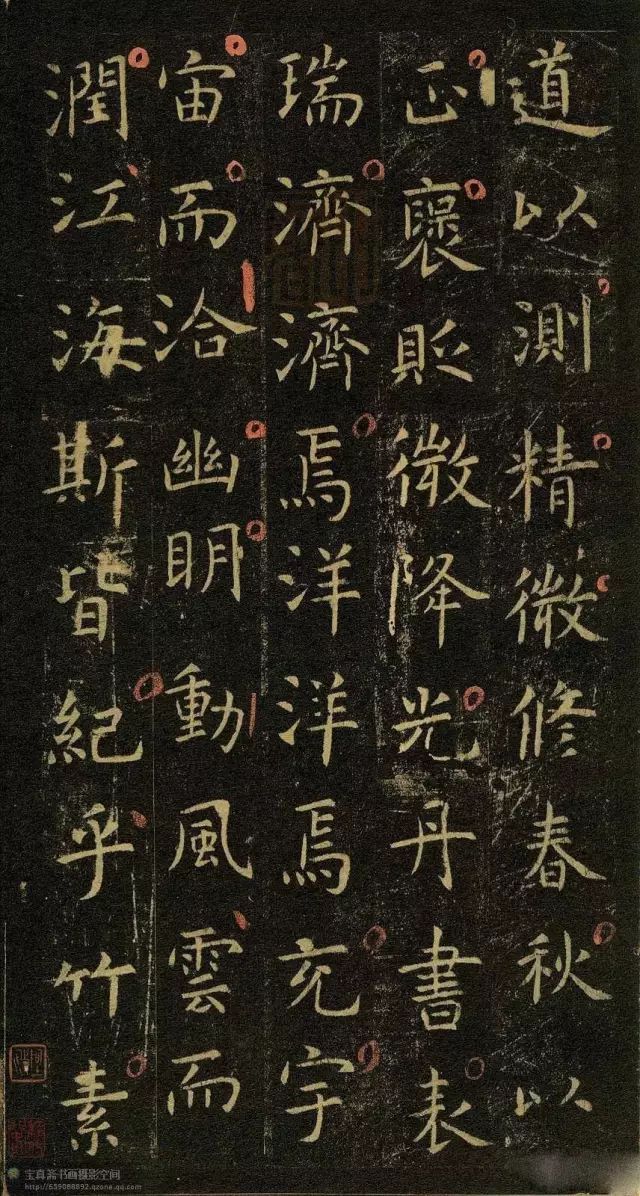 道以測精微修春秋以
正褒貶微降光丹書表
瑞濟濟焉洋洋焉充宇
宙而洽幽明動風雲而
潤江海斯皆紀乎竹素
宝真斋书画摄影空间
http://659088892.qzone.qq.com